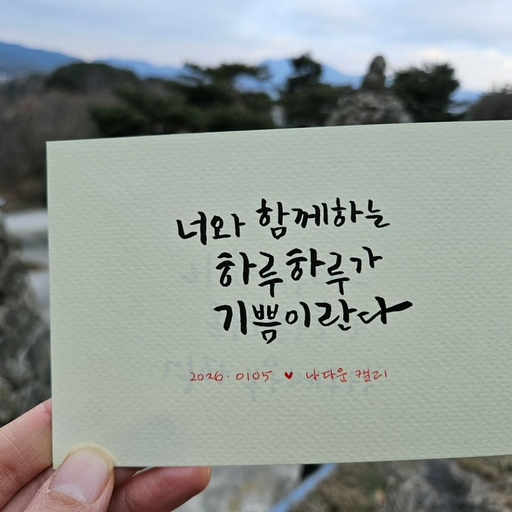 너와 함께하는
하루하루가
기쁨이란다
2026.0105 ♥ 나다운 캘리